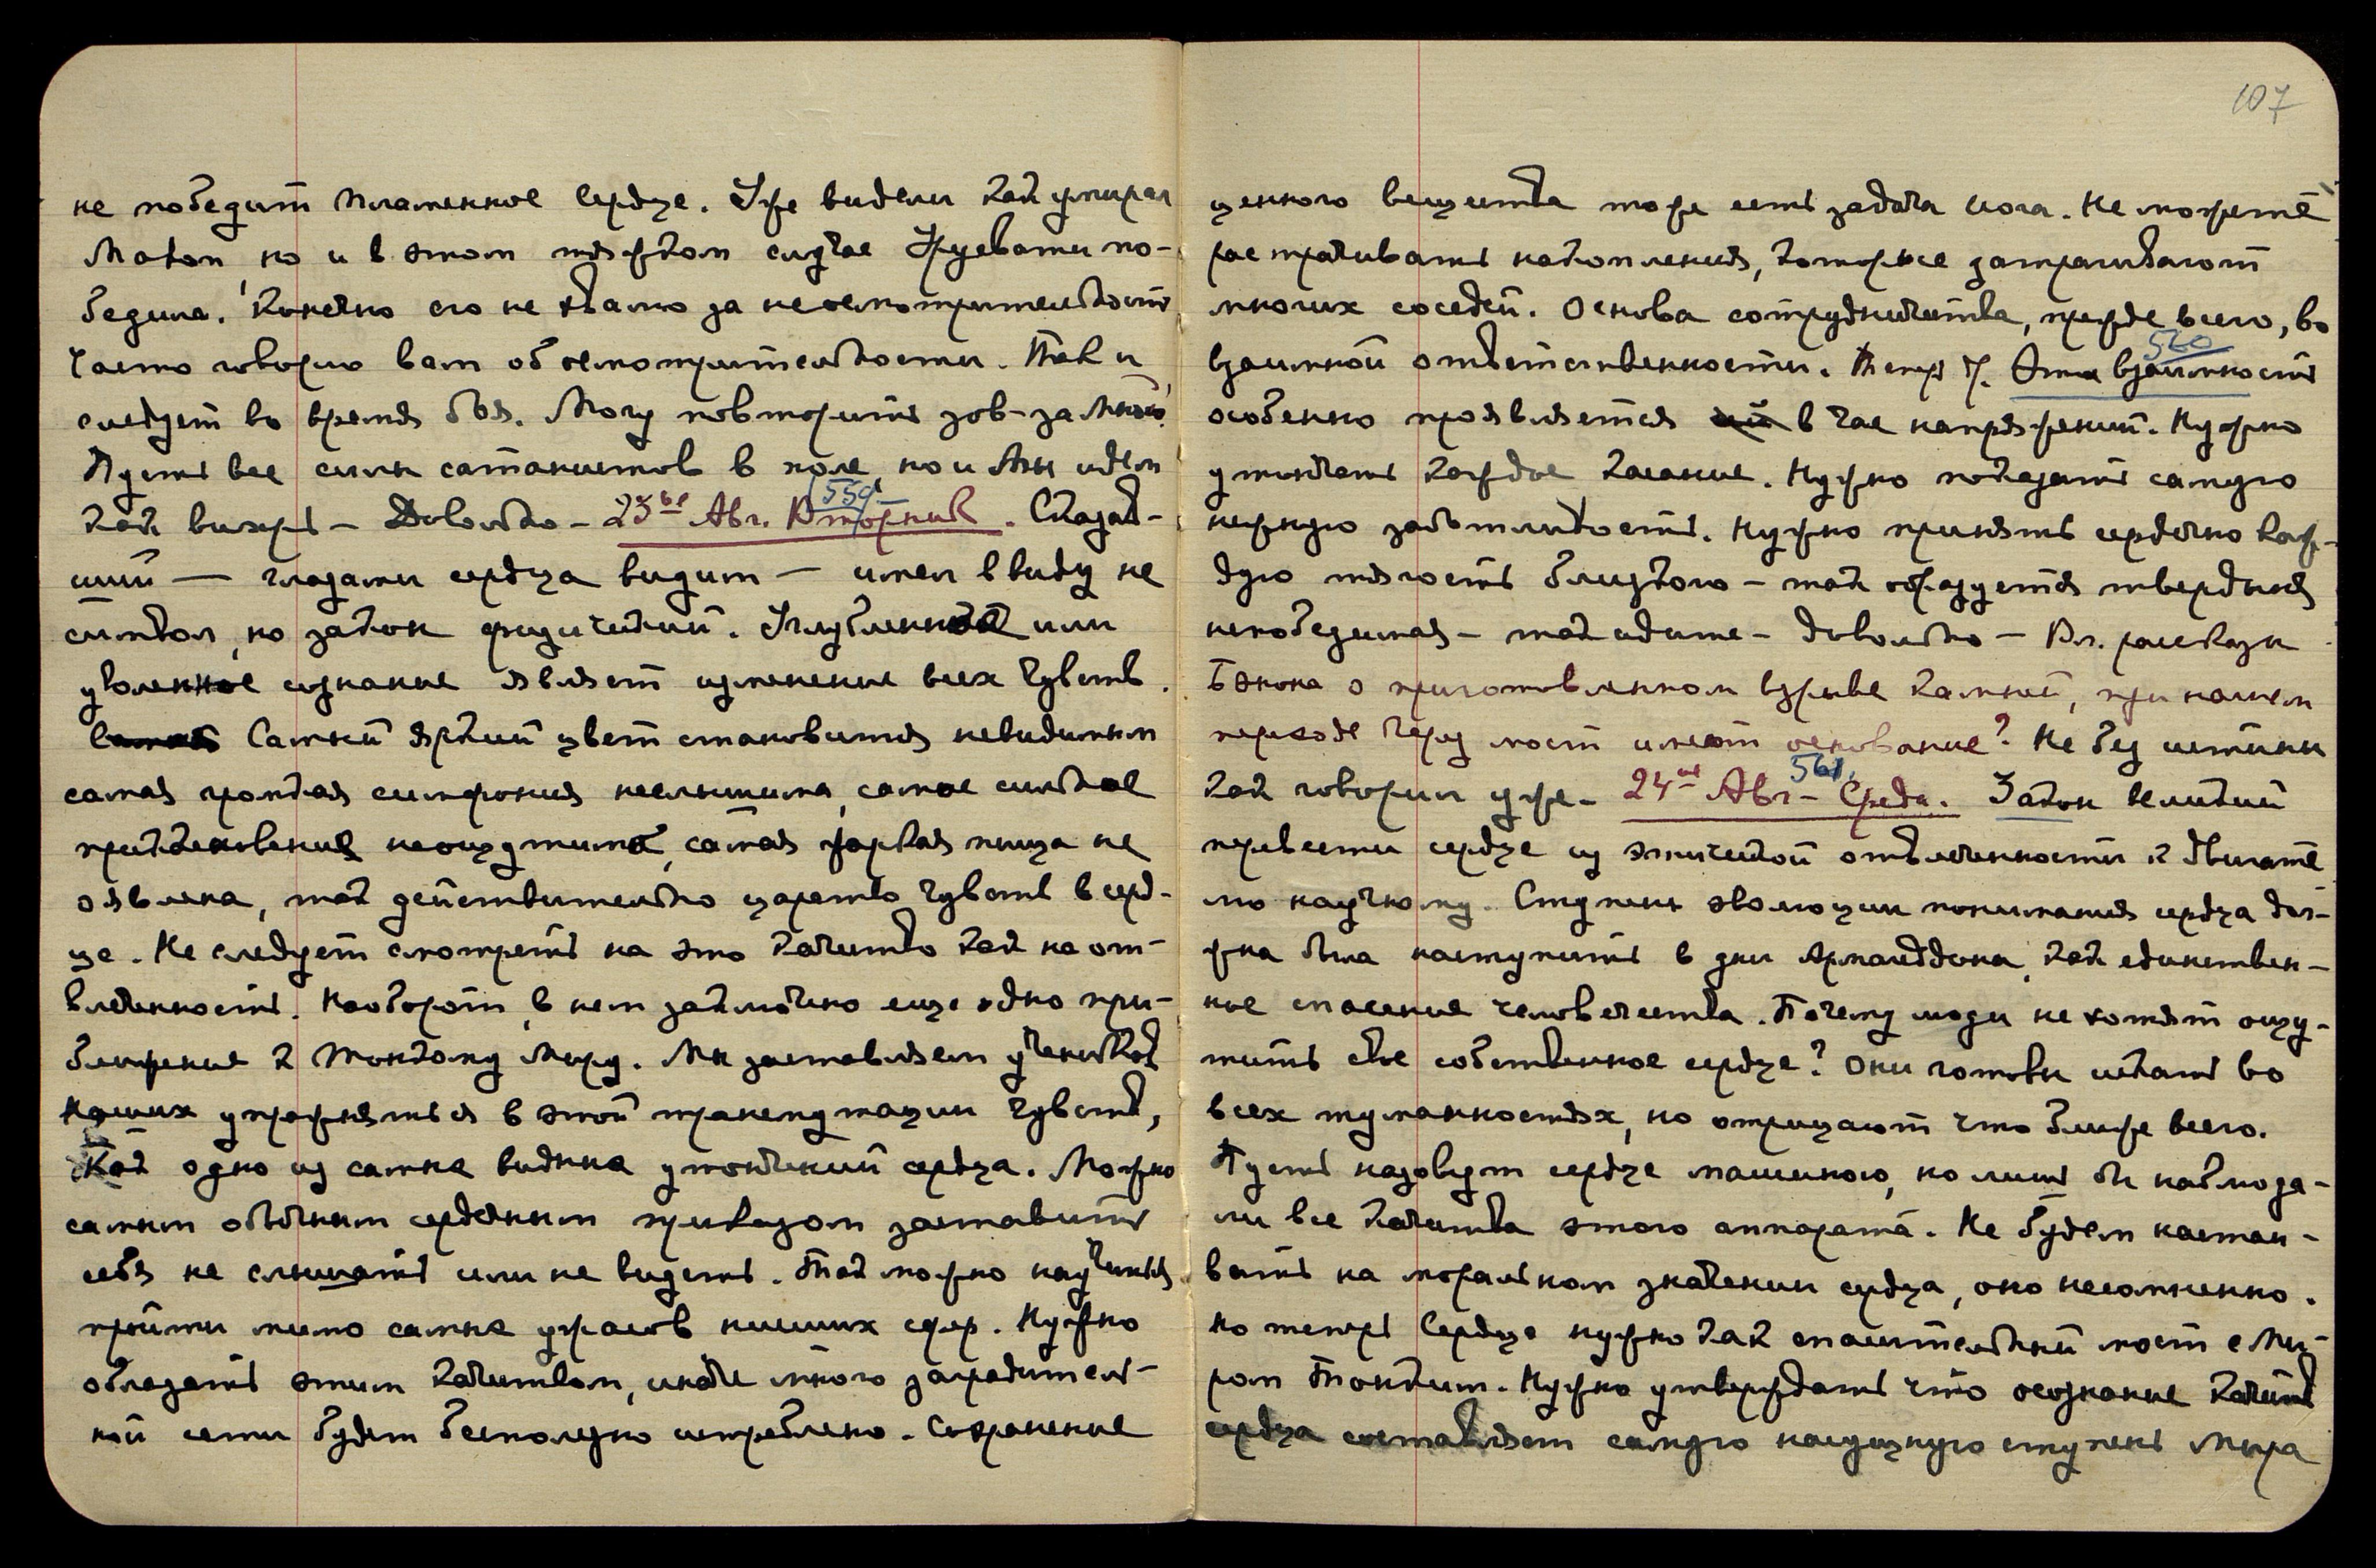 не победит пламенное сердце. Уже видели как умирал
Махон, но и в этом тяжком случае Урусвати по-
бедила. Конечно его не хвалю за неосмотрительность
Часто говорю вам об осмотрительности. Так и
следует во время боя. Могу повторить зов – за Мною.
Пусть все силы сатанистов в поле, но и Мы идем
как вихрь – Довольно – 23ье Авг. Вторник. Сказав-
559.
ший — глазами сердца видит — имел ввиду не
символ, но закон физический. Углубленное или
уволенное сознание являет изменение всех чувств.
Самый яркий цвет становится невидимым
самая громкая симфония неслышима, самое сильное
прикосновение неощутимо, самая жаркая пища не
оявлена, так действительно царство чувств в серд-
це. Не следует смотреть на это качество как на от-
влеченность. Наоборот, в нем заключено еще одно при-
ближение к Тонкому Миру. Мы заставляем учеников
Наших упражняться в этой трансмутации чувств,
Как одно из самых видных утончений сердца. Можно
самым обычным сердечным приказом заставить
себя не слышать или не видеть. Так можно научиться
пройти мимо самых ужасов низших сфер. Нужно
обладать этим качеством, иначе много заградитель-
ной сети будет бесполезно истреблено. Сохранение
107
ценного вещества тоже есть задача Йога. Не можете
растрачивать накопления, которые затрагивают
многих соседей. Основа сотрудничества, прежде всего, во
взаимной ответственности. Эта взаимность
520
особенно проявляется в час напряжений. Нужно
утончать каждое касание. Нужно показать самую
нежную заботливость. Нужно принять сердечно каж-
дую тягость близкого – так образуется твердыня
непобедимая – так идите – довольно – Вл. рассказы
Бэнона о приготовленном взрыве камней, при нашем
переходе через мост имеют основание? Не без истины
как говорил уже – 24ое Авг – Среда. Закон великий
561.
привести сердце из этической отвлеченности к двигате-
лю научному. Ступень эволюции понимания сердца дол-
жна была наступить в дни Армагеддона, как единствен-
ное спасение человечества. Почему люди не хотят ощу-
тить свое собственное сердце? Они готовы искать во
всех туманностях, но отрицают что ближе всего.
Пусть назовут сердце машиною, но лишь бы наблюда-
ли все качества этого аппарата. Не будем настаи-
вать на моральном значении сердца, оно несомненно.
Но теперь Сердце нужно как спасительный мост с Ми-
ром Тонким. Нужно утверждать что осознание качеств
сердца составляет самую насущную ступень Мира